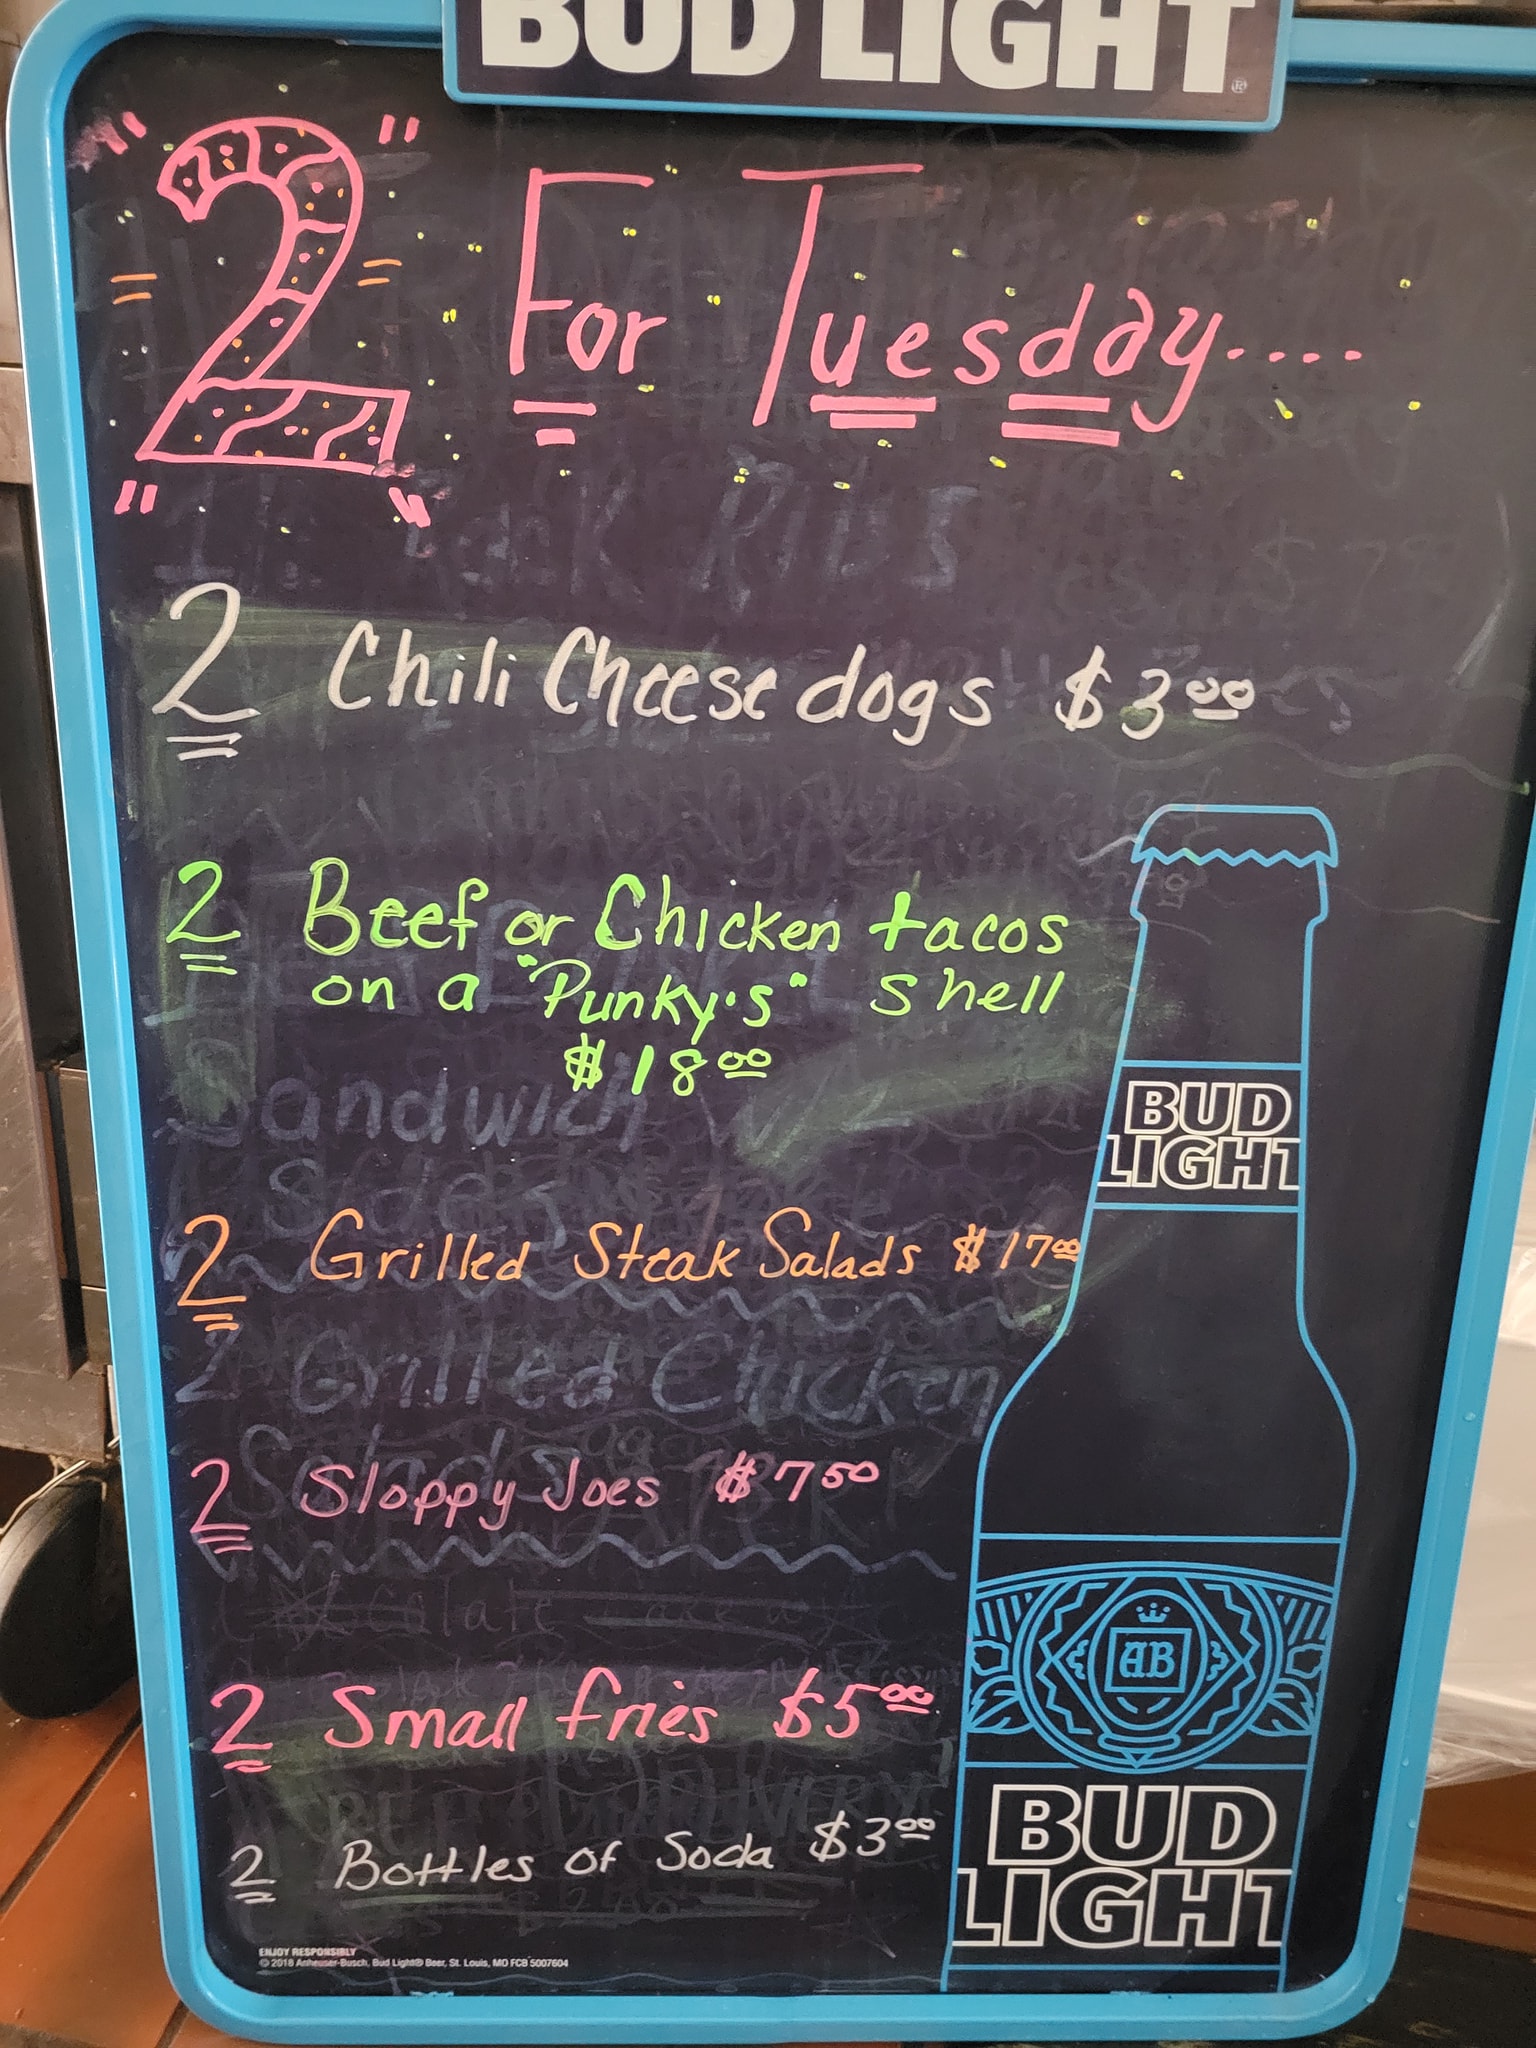 BUD LIGHT
"2" For Tuesday....
2 Chili Cheese dogs $3.00
2 Beef or Chicken tacos
on a "Punky's" shell
$18.00
2 Grilled Steak Salads $17.00
2 Sloppy Joes $7.50
2 Small fries $5.00
2 Bottles of Soda $3.00
BUD
LIGHT
AB
BUD
LIGHT
Sandwich
Sides
2 Grilled Chicken
Salads
ENJOY RESPONSIBLY
© 2018 Anheuser-Busch, Bud Light® Beer, St. Louis, MO FCB 5007604